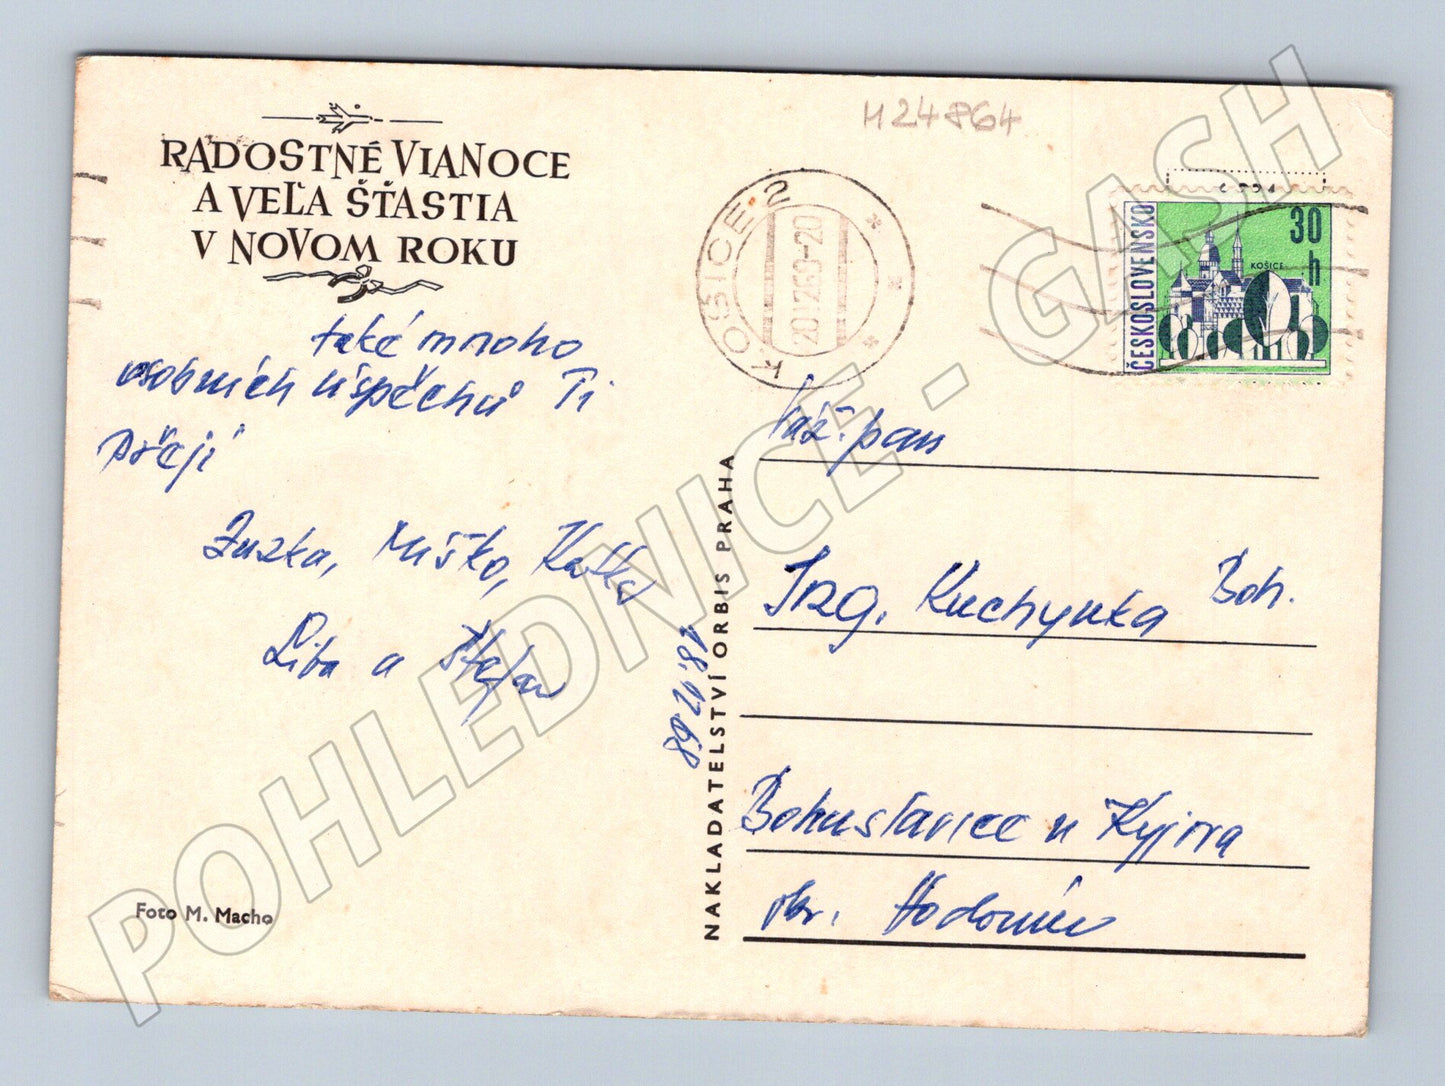 RADOSTNÉ VIANOCE
A VEĽA ŠŤASTIA
V NOVOM ROKU
také mnoho
osobních úspěchů Ti
přejí
Zuzka, Miško, Katka
Liba a Štefan
Foto M. Macho
M24864
KOŠICE 2
20.XII.69-20
ČESKOSLOVENSKO
30
h
KOŠICE
NAKLADATELSTVÍ ORBIS PRAHA
Váž. pan
Ing. Kuchynka Boh.
Bohuslavice u Kyjova
okr. Hodonín
POHLEDNICE - GASH